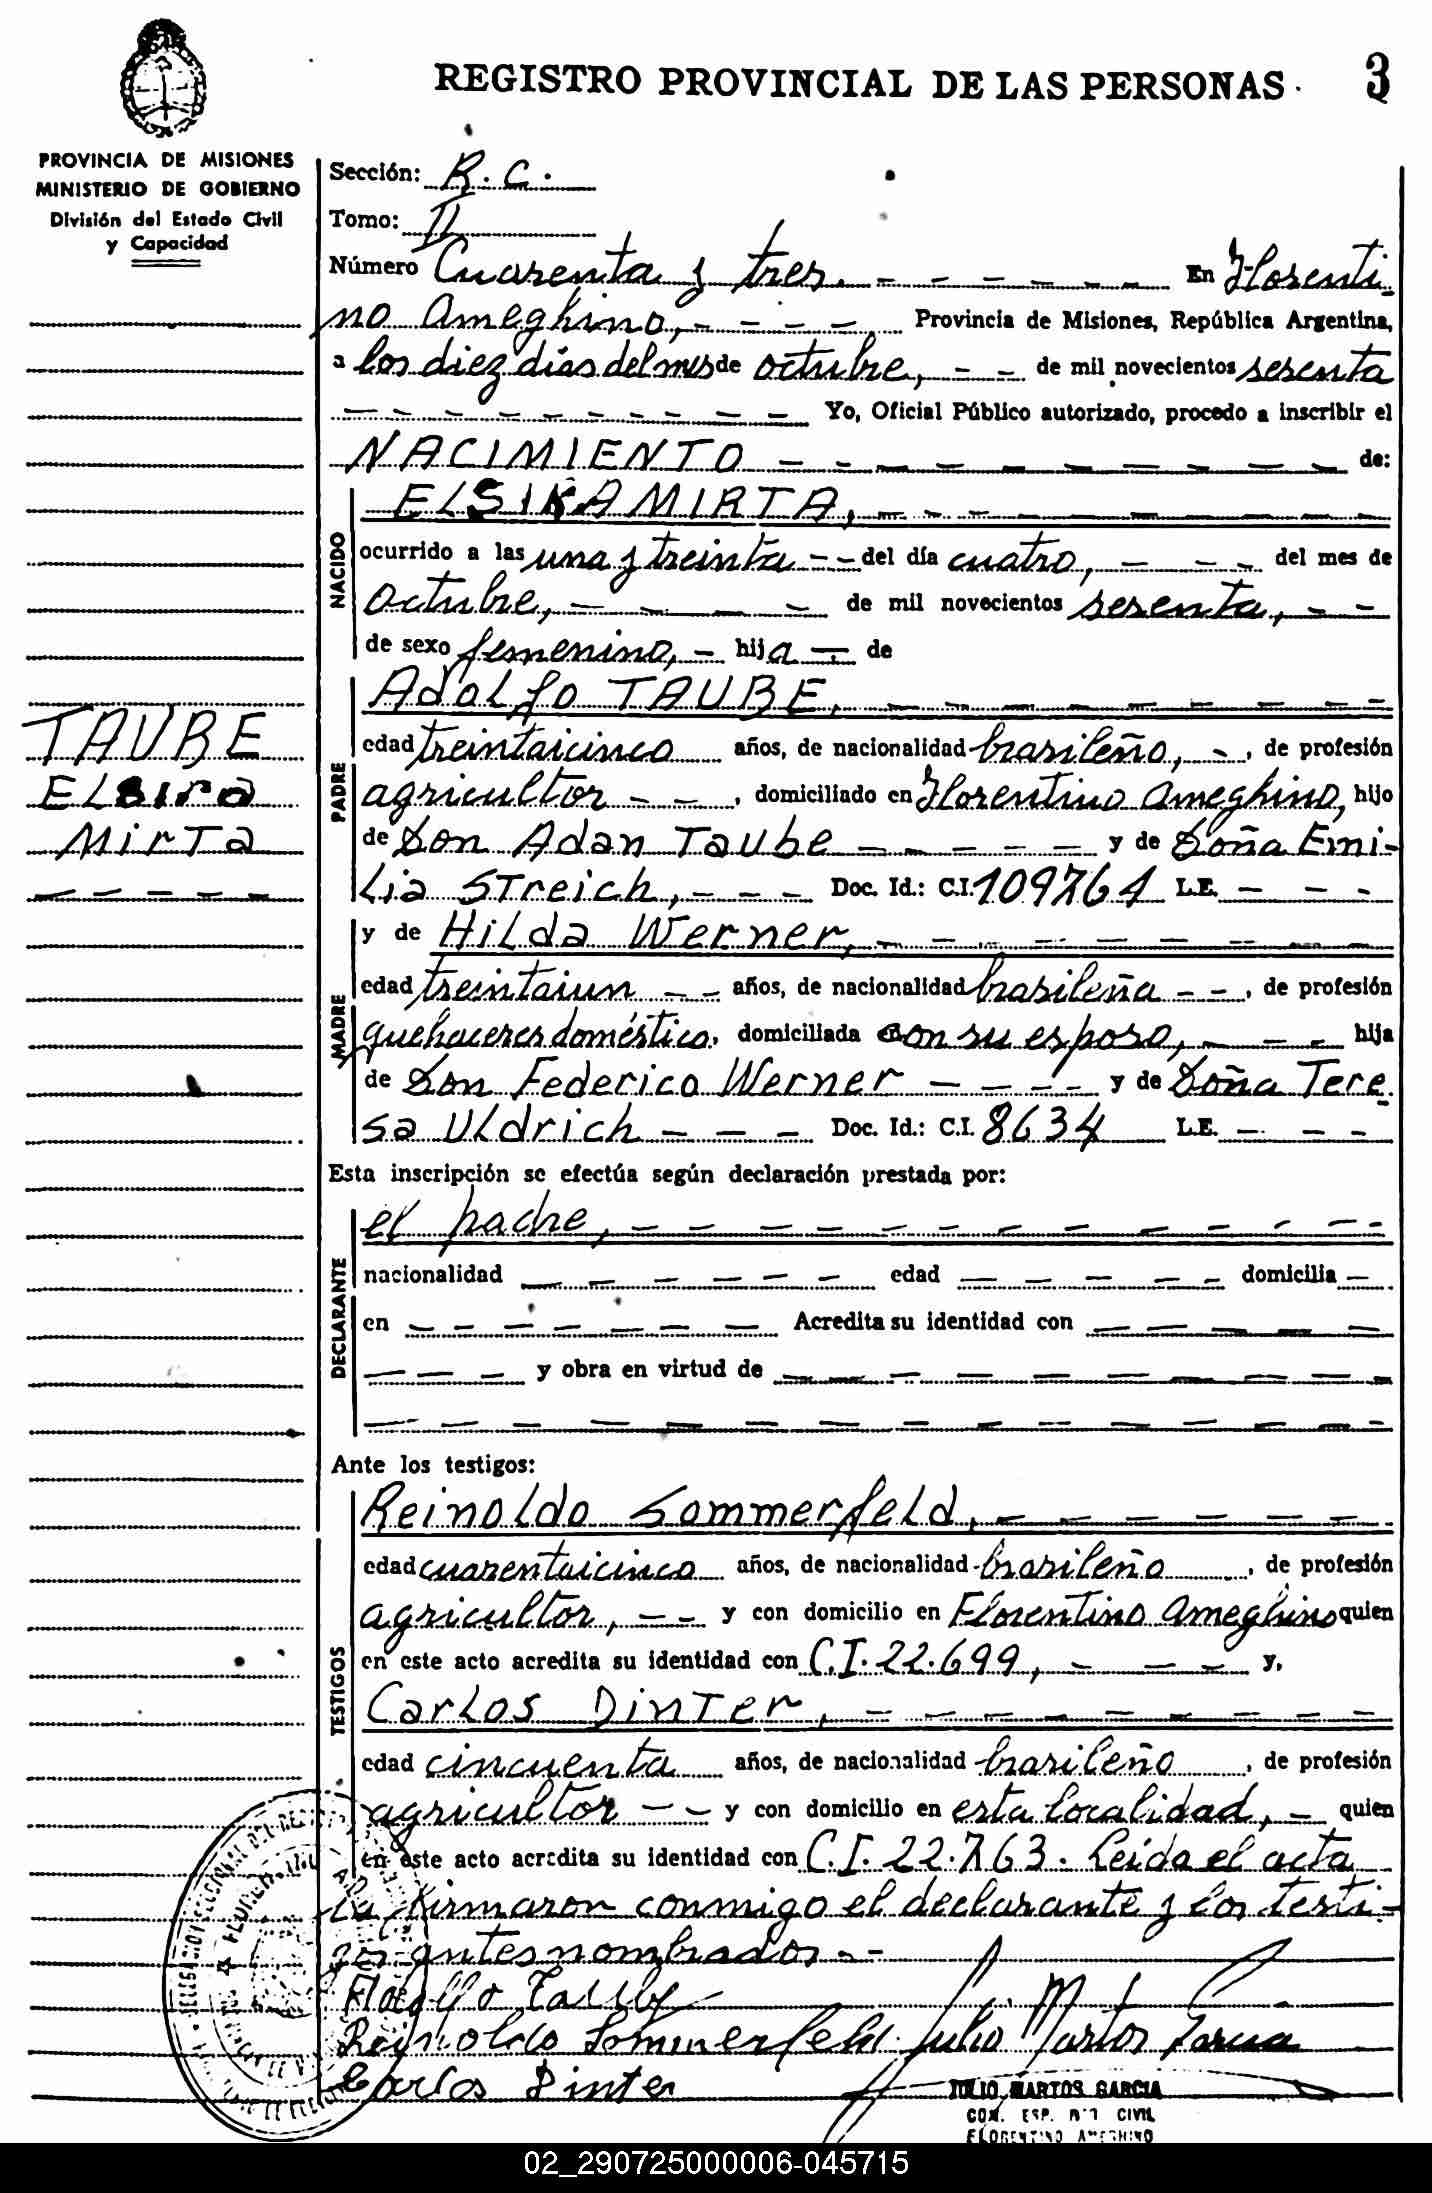 REGISTRO PROVINCIAL DE LAS PERSONAS. 3
PROVINCIA DE MISIONES
MINISTERIO DE GOBIERNO
División del Estado Civil
y Capacidad
Sección: R. C.
Tomo: II
Número Cuarenta y tres. – – – – – – En Florenti-
no Ameghino, – – – – Provincia de Misiones, República Argentina,
a los diez días del mes de octubre, – – de mil novecientos sesenta
– – – – – – – – – Yo, Oficial Público autorizado, procedo a inscribir el
NACIMIENTO – – – – – – – – – – de:
ELSIRA MIRTA, – – – – – – – – – –
NACIDO
ocurrido a las una y treinta – – del día cuatro, – – – – del mes de
octubre, – – – – de mil novecientos sesenta, – –
de sexo femenino, – hija – de
Adolfo TAUBE, – – – – – – – – – –
TAUBE
Elsira
Mirta
– – – – –
PADRE
edad treintaicinco años, de nacionalidad brasileño, – , de profesión
agricultor – – , domiciliado en Florentino Ameghino, hijo
de Don Adan Taube – – – – – – y de Doña Emi-
lia Streich, – – – Doc. Id.: C.I. 109764 L.E. – – –
y de Hilda Werner, – – – – – – – – –
MADRE
edad treintaiun – – años, de nacionalidad brasileña – – , de profesión
quehaceres doméstico, domiciliada con su esposo, – – – hija
de Don Federico Werner – – – – y de Doña Tere-
sa Uldrich – – – Doc. Id.: C.I. 8634 L.E. – – –
Esta inscripción se efectúa según declaración prestada por:
el padre, – – – – – – – – – – – – –
DECLARANTE
nacionalidad – – – – – – edad – – – – – domicilia –
en – – – – – – – Acredita su identidad con – – – – –
– – – y obra en virtud de – – – – – – – – – –
– – – – – – – – – – – – – –
Ante los testigos:
Reinoldo Sommerfeld, – – – – – – –
TESTIGOS
edad cuarentaicinco años, de nacionalidad brasileño , de profesión
agricultor, – – y con domicilio en Florentino Ameghino quien
en este acto acredita su identidad con C.I. 22.699, – – – y,
Carlos Dinter, – – – – – – – – –
edad cincuenta años, de nacionalidad brasileño , de profesión
agricultor – – y con domicilio en esta localidad, – quien
en este acto acredita su identidad con C.I. 22.763. Leida el acta
la firmaron conmigo el declarante y los testi-
gos antes nombrados. –
Adolfo Taube
Reinoldo Sommerfeld Julio Martos Garcia
Carlos Dinter
JULIO MARTOS GARCIA
CIVIL
FLORENTINO AMEGHINO
02_290725000006-045715